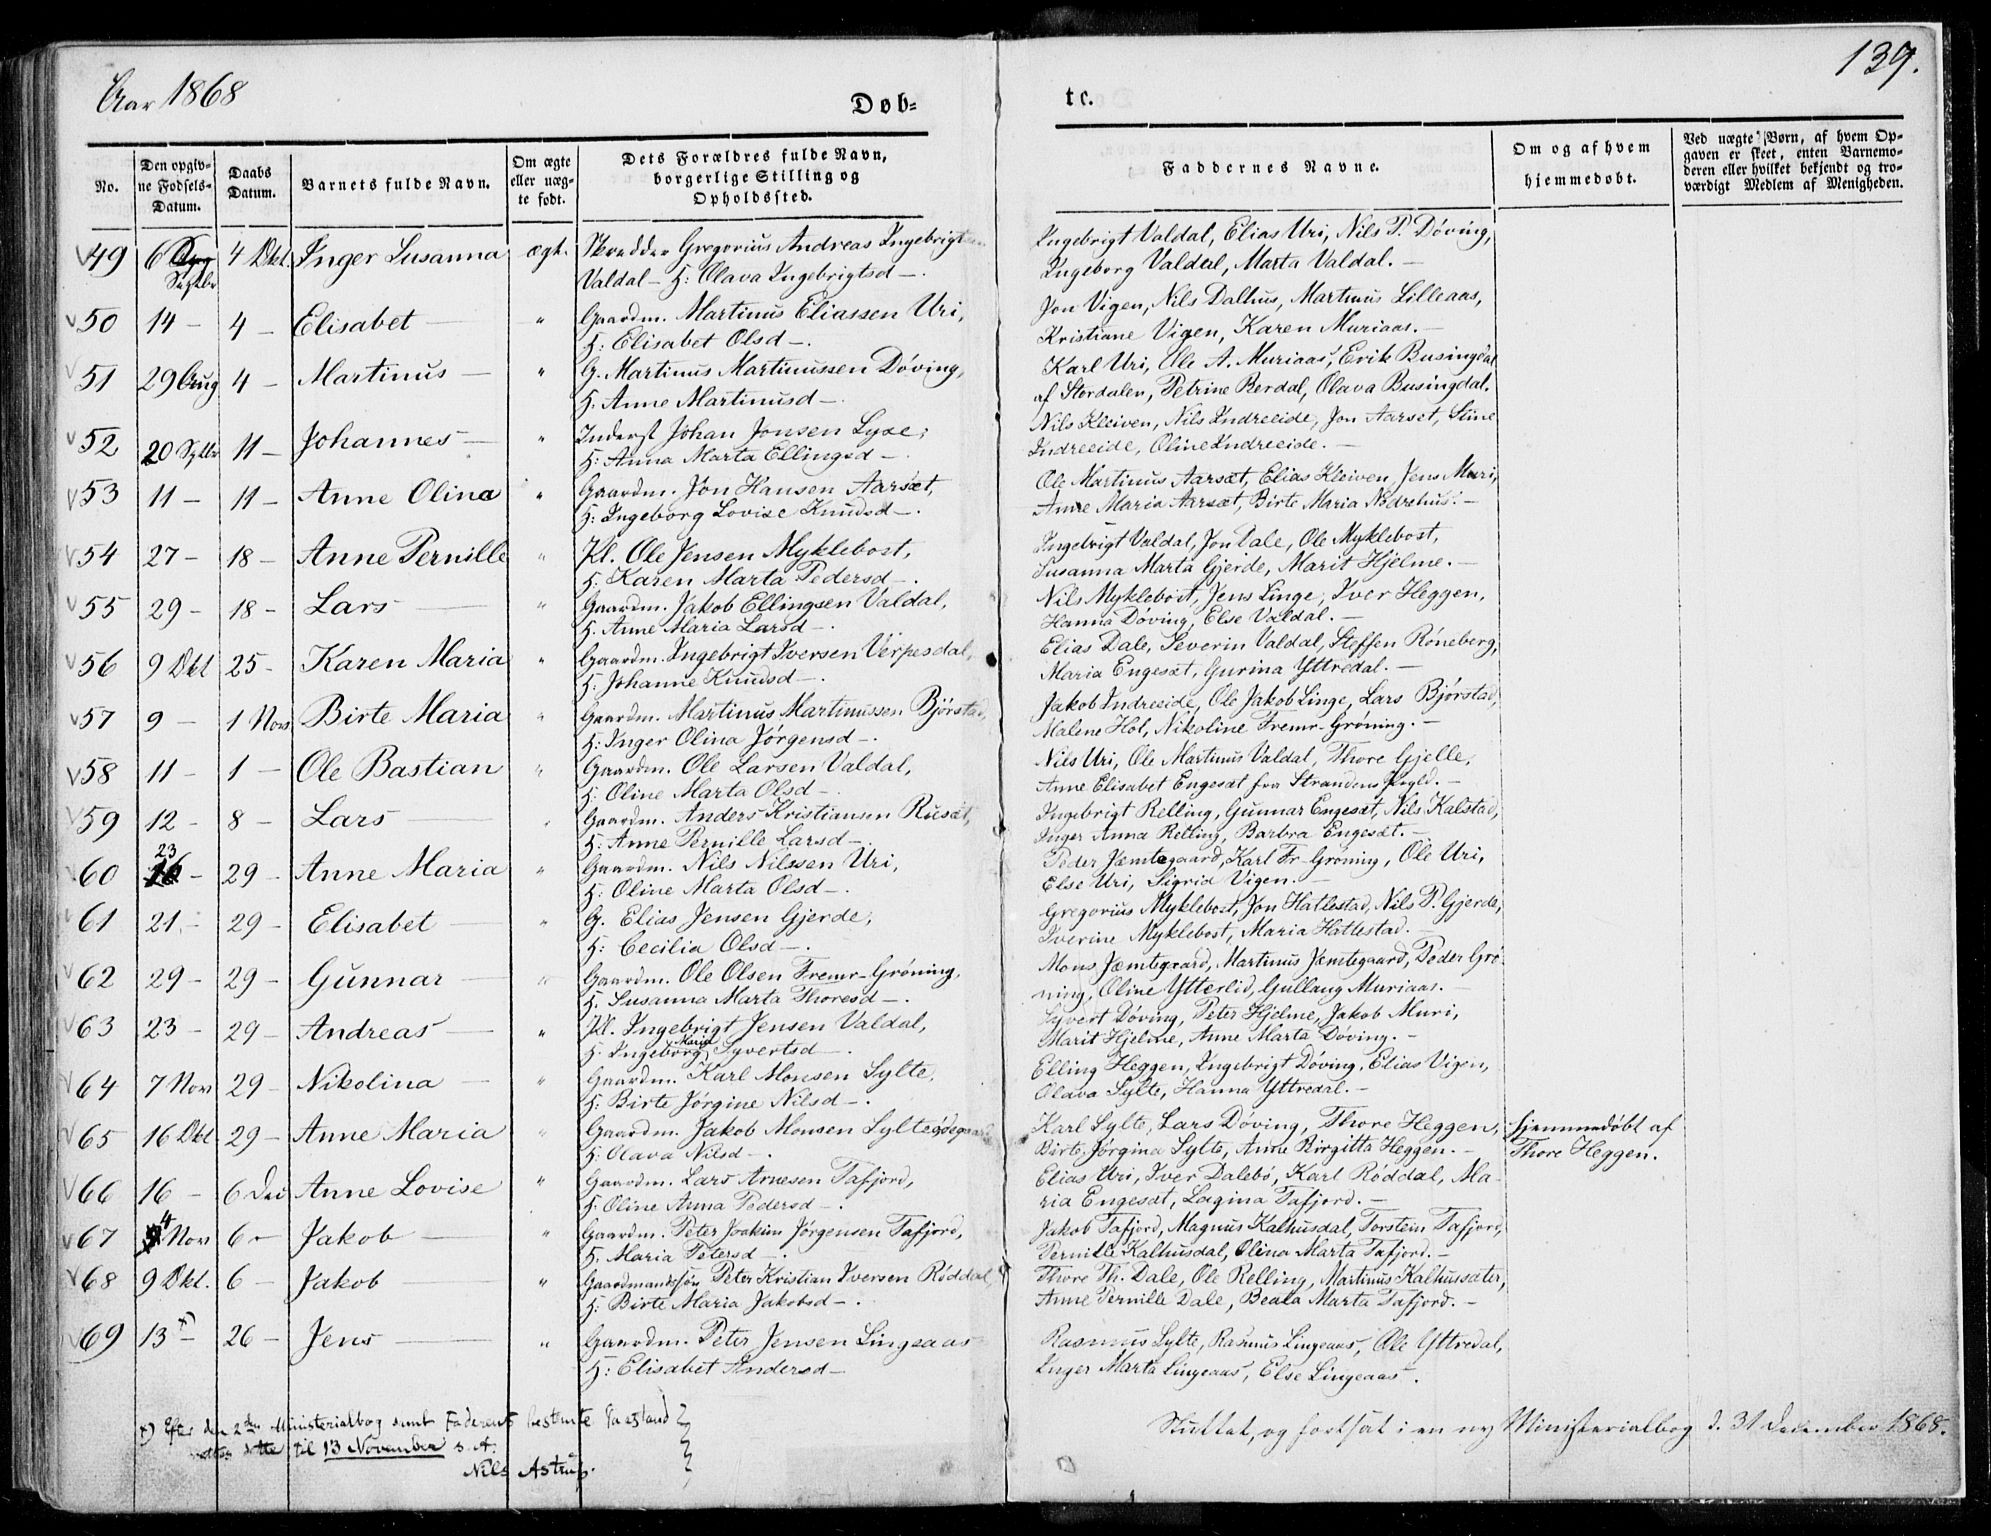 Aar 1868
Døb=
tc.
139.
No.
Den opgiv-
ne Fødsels-
Datum.
Daabs
Datum.
Barnets fulde Navn.
Om ægte
eller uæg-
te født.
Dets Forældres fulde Navn,
borgerlige Stilling og
Opholdssted.
Faddernes Navne.
Om og af hvem
hjemmedøbt.
Ved uægte Børn, af hvem Op-
gaven er skeet, enten Barnemo-
deren eller hvilket bekjendt og tro-
værdigt Medlem af Menigheden.
49 6 Septbr 4 Okt. Inger Susanna ægt. Skrædder Gregorius Andreas Ingebrigtsen
Valdal – H: Olava Ingebrigtsd –.
Ingebrigt Valdal, Elias Uri, Nils P. Døving,
Ingeborg Valdal, Marta Valdal. –
50 14 – 4 – Elisabet – " Gaardm. Martinus Eliassen Uri,
H: Elisabet Olsd –.
Jon Vigen, Nils Dalhus, Martinus Lilleaas,
Kristiane Vigen, Karen Muriaas. –
51 29 Aug 4 – Martinus – " G. Martinus Martinussen Døving,
H: Anne Martinusd –.
Karl Uri, Ole A. Muriaas, Erik Busingdal
af Stordalen, Petrine Berdal, Olava Busingdal.
52 20 Septbr 11 – Johannes – " Inderst Johan Jonsen Lyse,
H: Anna Marta Ellingsd –.
Nils Kleiven, Nils Indreeide, Jon Aarset, Stine
Indreeide, Oline Indreeide. –
53 11 – 11 – Anne Olina " Gaardm. Jon Hansen Aarsæt,
H: Ingeborg Lovise Knudsd –.
Ole Martinus Aarsæt, Elias Kleiven, Jens Muri,
Anne Maria Aarsæt, Birte Maria Nødrehus. –
54 27 – 18 – Anne Pernille " Kl. Ole Jensen Myklebost,
H. Karen Marta Pedersd –.
Ingebrigt Valdal, Jon Dale, Ole Myklebost,
Susanna Marta Gjerde, Marit Hjelme. –
55 29 – 18 – Lars – " Gaardm. Jakob Ellingsen Valdal,
H. Anne Maria Larsd –.
Nils Myklebost, Jens Linge, Iver Heggen,
Hanna Døving, Else Valdal. –
56 9 Okt 25 – Karen Maria " Gaardm. Ingebrigt Iversen Verpesdal,
H: Johanne Knudsd –.
Elias Dale, Severin Valdal, Steffen Røneberg,
Maria Engesæt, Gurina Yttredal. –
57 9 – 1 Nov Birte Maria " Gaardm. Martinus Martinussen Bjørstad,
H: Inger Olina Jørgensd –.
Jakob Indreeide, Ole Jakob Linge, Lars Bjørstad,
Malene Hol, Nikoline Fremr-Grøning. –
58 11 – 1 – Ole Bastian " Gaardm. Ole Larsen Valdal,
H: Oline Marta Olsd –.
Nils Uri, Ole Martinus Valdal, Thore Gjelle,
Anne Elisabet Engesæt fra Strandens Prgld. –
59 12 – 8 – Lars – " Gaardm. Anders Kristiansen Rusæt,
H: Anne Pernille Larsd –.
Ingebrigt Relling, Gunnar Engesæt, Nils Kalstad,
Inger Anna Relling, Barbra Engesæt. –
60 23 – 29 – Anne Maria " Gaardm. Nils Nilssen Uri,
H: Oline Marta Olsd –.
Peder Jæmtegaard, Karl Fr-Grøning, Ole Uri,
Else Uri, Sigrid Vigen. –
61 21 – 29 – Elisabet – " G. Elias Jensen Gjerde,
H: Cecilia Olsd –.
Gregorius Myklebost, Jon Hatlestad, Nils P. Gjerde,
Iverine Myklebost, Maria Hatlestad. –
62 29 – 29 – Gunnar – " Gaardm. Ole Olsen Fremr-Grøning,
H. Susanna Marta Thoresd –.
Mons Jæmtegaard, Martinus Jæmtegaard, Peder Grø-
ning, Oline Ytterlid, Gullaug Muriaas. –
63 23 – 29 – Andreas – " Kl. Ingebrigt Jensen Valdal,
H. Ingeborg Maria Syvertsd –.
Syvert Døving, Peter Hjelme, Jakob Muri,
Marit Hjelme, Anne Marta Døving. –
64 7 Nov 29 – Nikolina – " Gaardm. Karl Monsen Sylte,
H: Birte Jørgine Nilsd –.
Elling Heggen, Ingebrigt Døving, Elias Vigen,
Olava Sylte, Hanna Yttredal. –
65 16 Okt 29 – Anne Maria " Gaardm. Jakob Monsen Sylteødegaard
H: Olava Nilsd –.
Karl Sylte, Lars Døving, Thore Heggen,
Birte Jørgina Sylte, Anne Birgitta Heggen. –
Hjemmedøbt af
Thore Heggen.
66 16 – 6 Dec Anne Lovise " Gaardm. Lars Arnesen Tafjord,
H: Oline Anna Pedersd –.
Elias Uri, Iver Dalebø, Karl Røddal, Ma-
ria Engesæt, Lagina Tafjord. –
67 4 Nov 6 – Jakob – " Gaardm. Peter Joakim Jørgensen Tafjord,
H. Maria Petersd –.
Jakob Tafjord, Magnus Kalhusdal, Torstein Tafjord,
Pernille Kalhusdal, Olina Marta Tafjord. –
68 9 Okt. 6 – Jakob – " Gaardmandssøn Peter Kristian Iversen Røddal,
H: Birte Maria Jakobsd –.
Thore Th. Dale, Ole Relling, Martinus Kalhussæter,
Anne Pernille Dale, Beata Marta Tafjord. –
69 13 x) – 26 – Jens – " Gaardm. Peter Jensen Lingeaas
H: Elisabet Andersd –
Rasmus Sylte, Rasmus Lingeaas, Ole Yttredal,
Inger Marta Lingeaas, Else Lingeaas.
x) Efter den 2den Ministerialbog samt Faderens bestemte Paastand
dette til 13 November s. A.
Nils Astrup.
Sluttet, og fortsat i en ny Ministerialbog d. 31 December 1868.